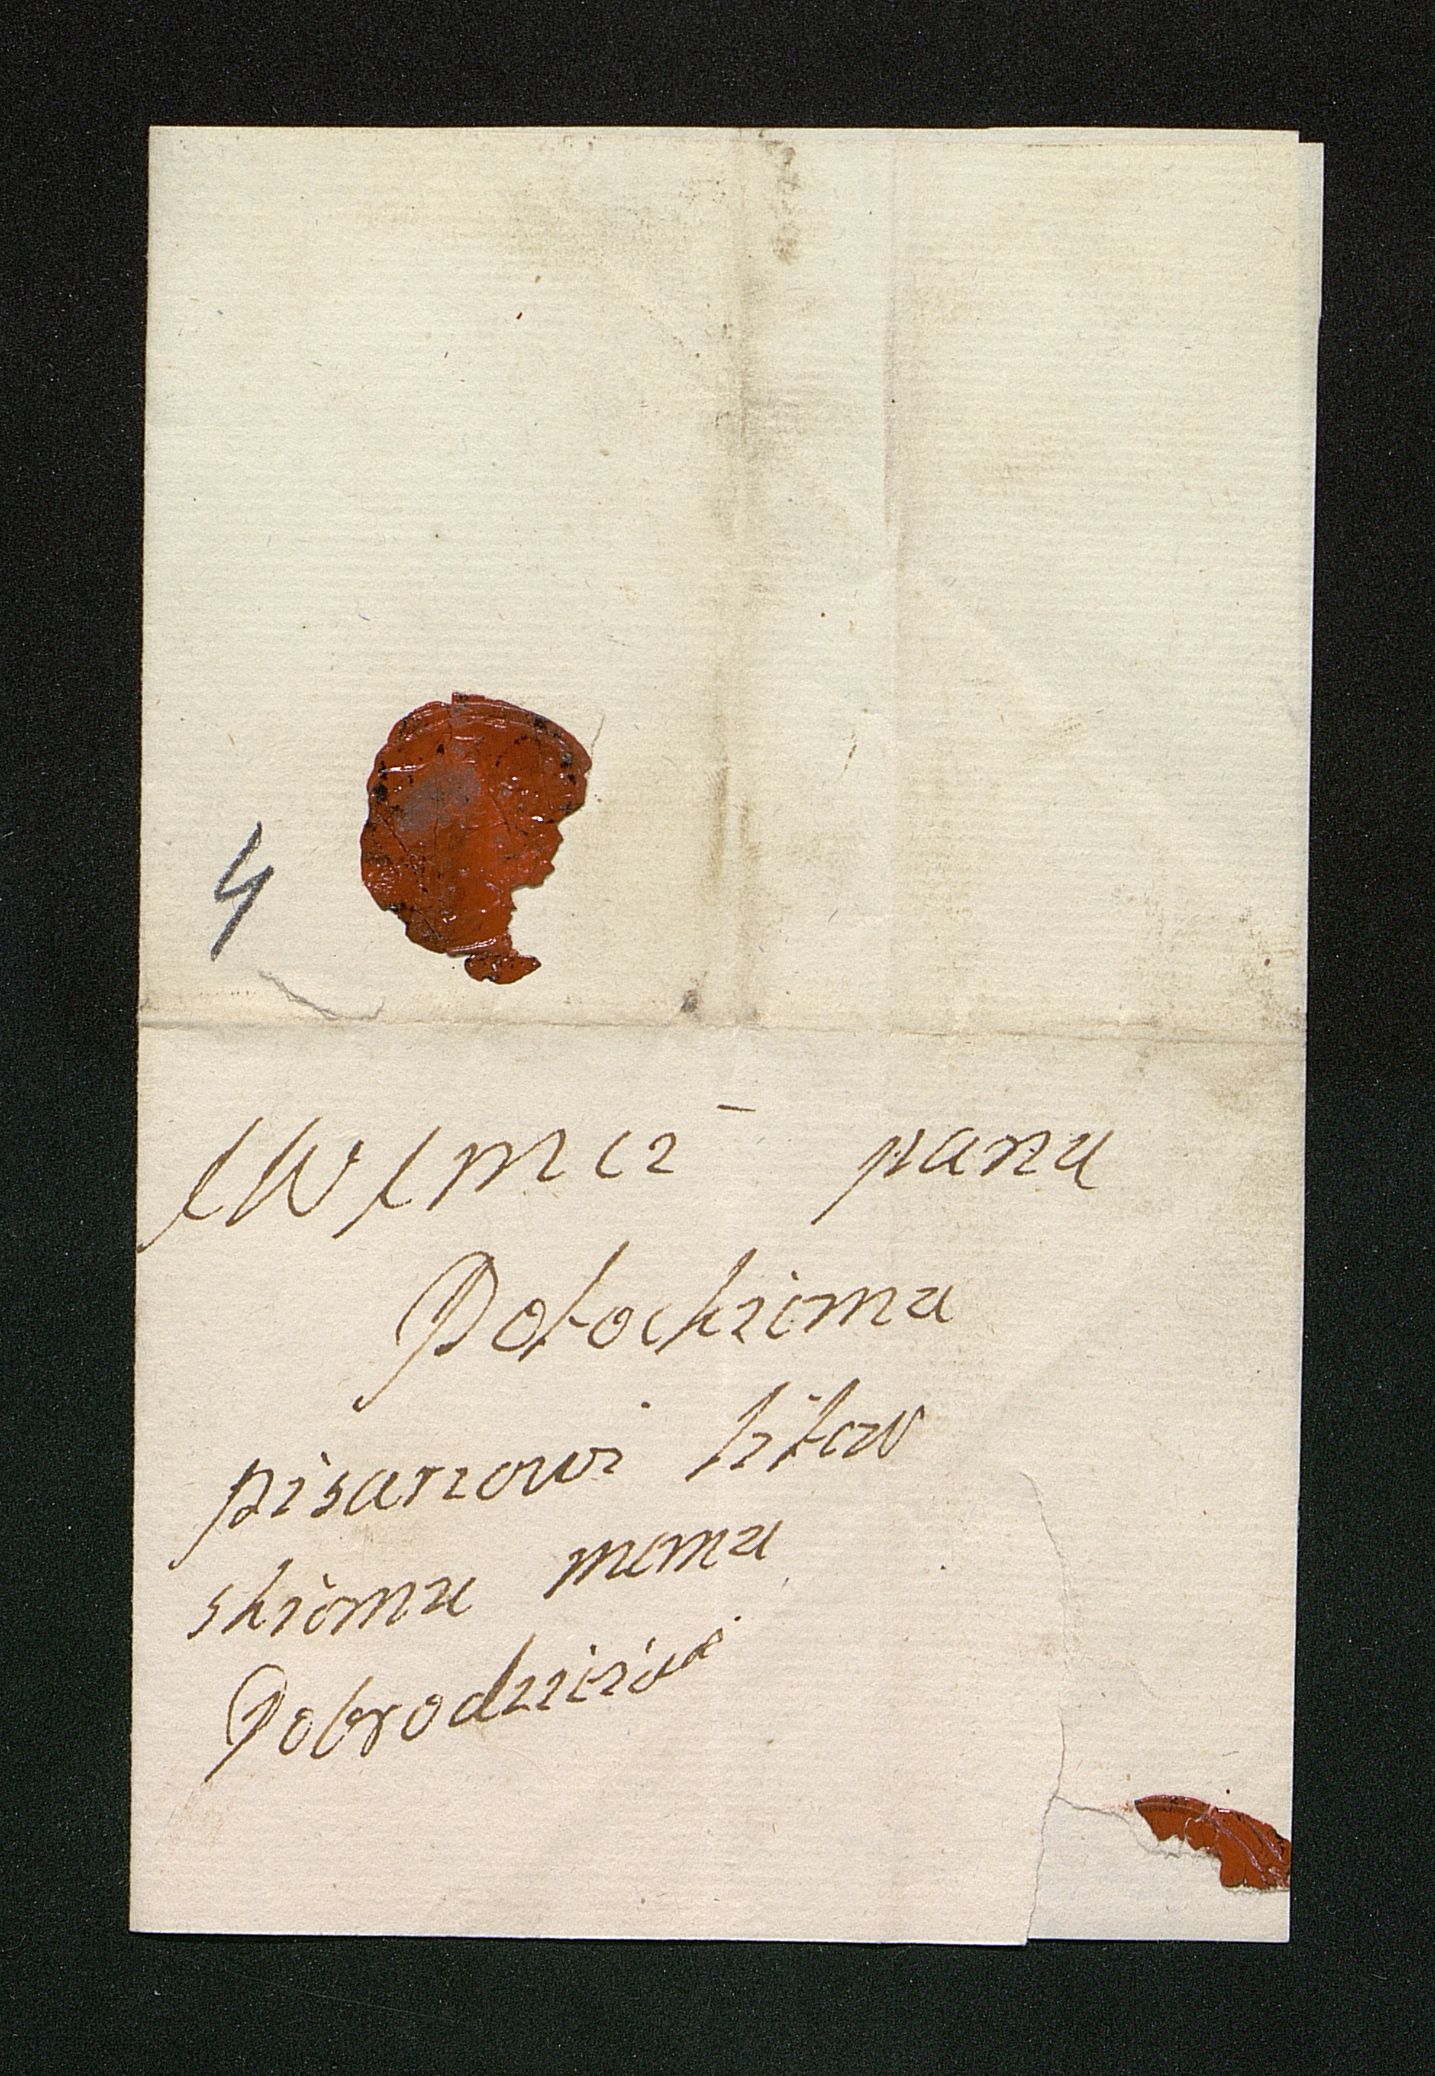 4
JWJmci panu
Potockiemu
pisarzowi litew
skiemu memu
Dobrodzieiowi